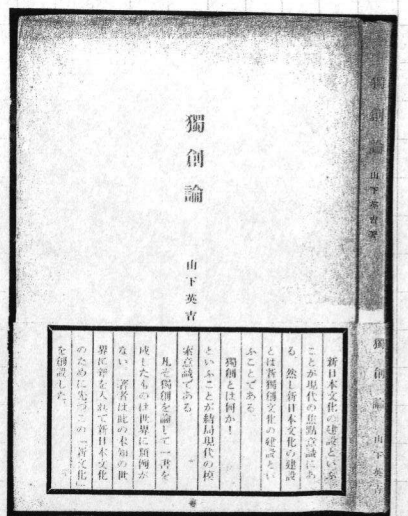 獨創論
山下英吉
新日本文化の建設といふ
ことが現代の焦點意識にあ
る。然し新日本文化の建設
とは新獨創文化の建設とい
ふことである
獨創とは何か！
といふことが結局現代の模
索意識である
凡そ獨創を論して一書を
成したものは世界に類例が
ない 著者は此の未知の世
界に斧を入れて新日本文化
のために先づこの「新文化」
を創設した。
獨創論
山下英吉著
獨創論 山下英